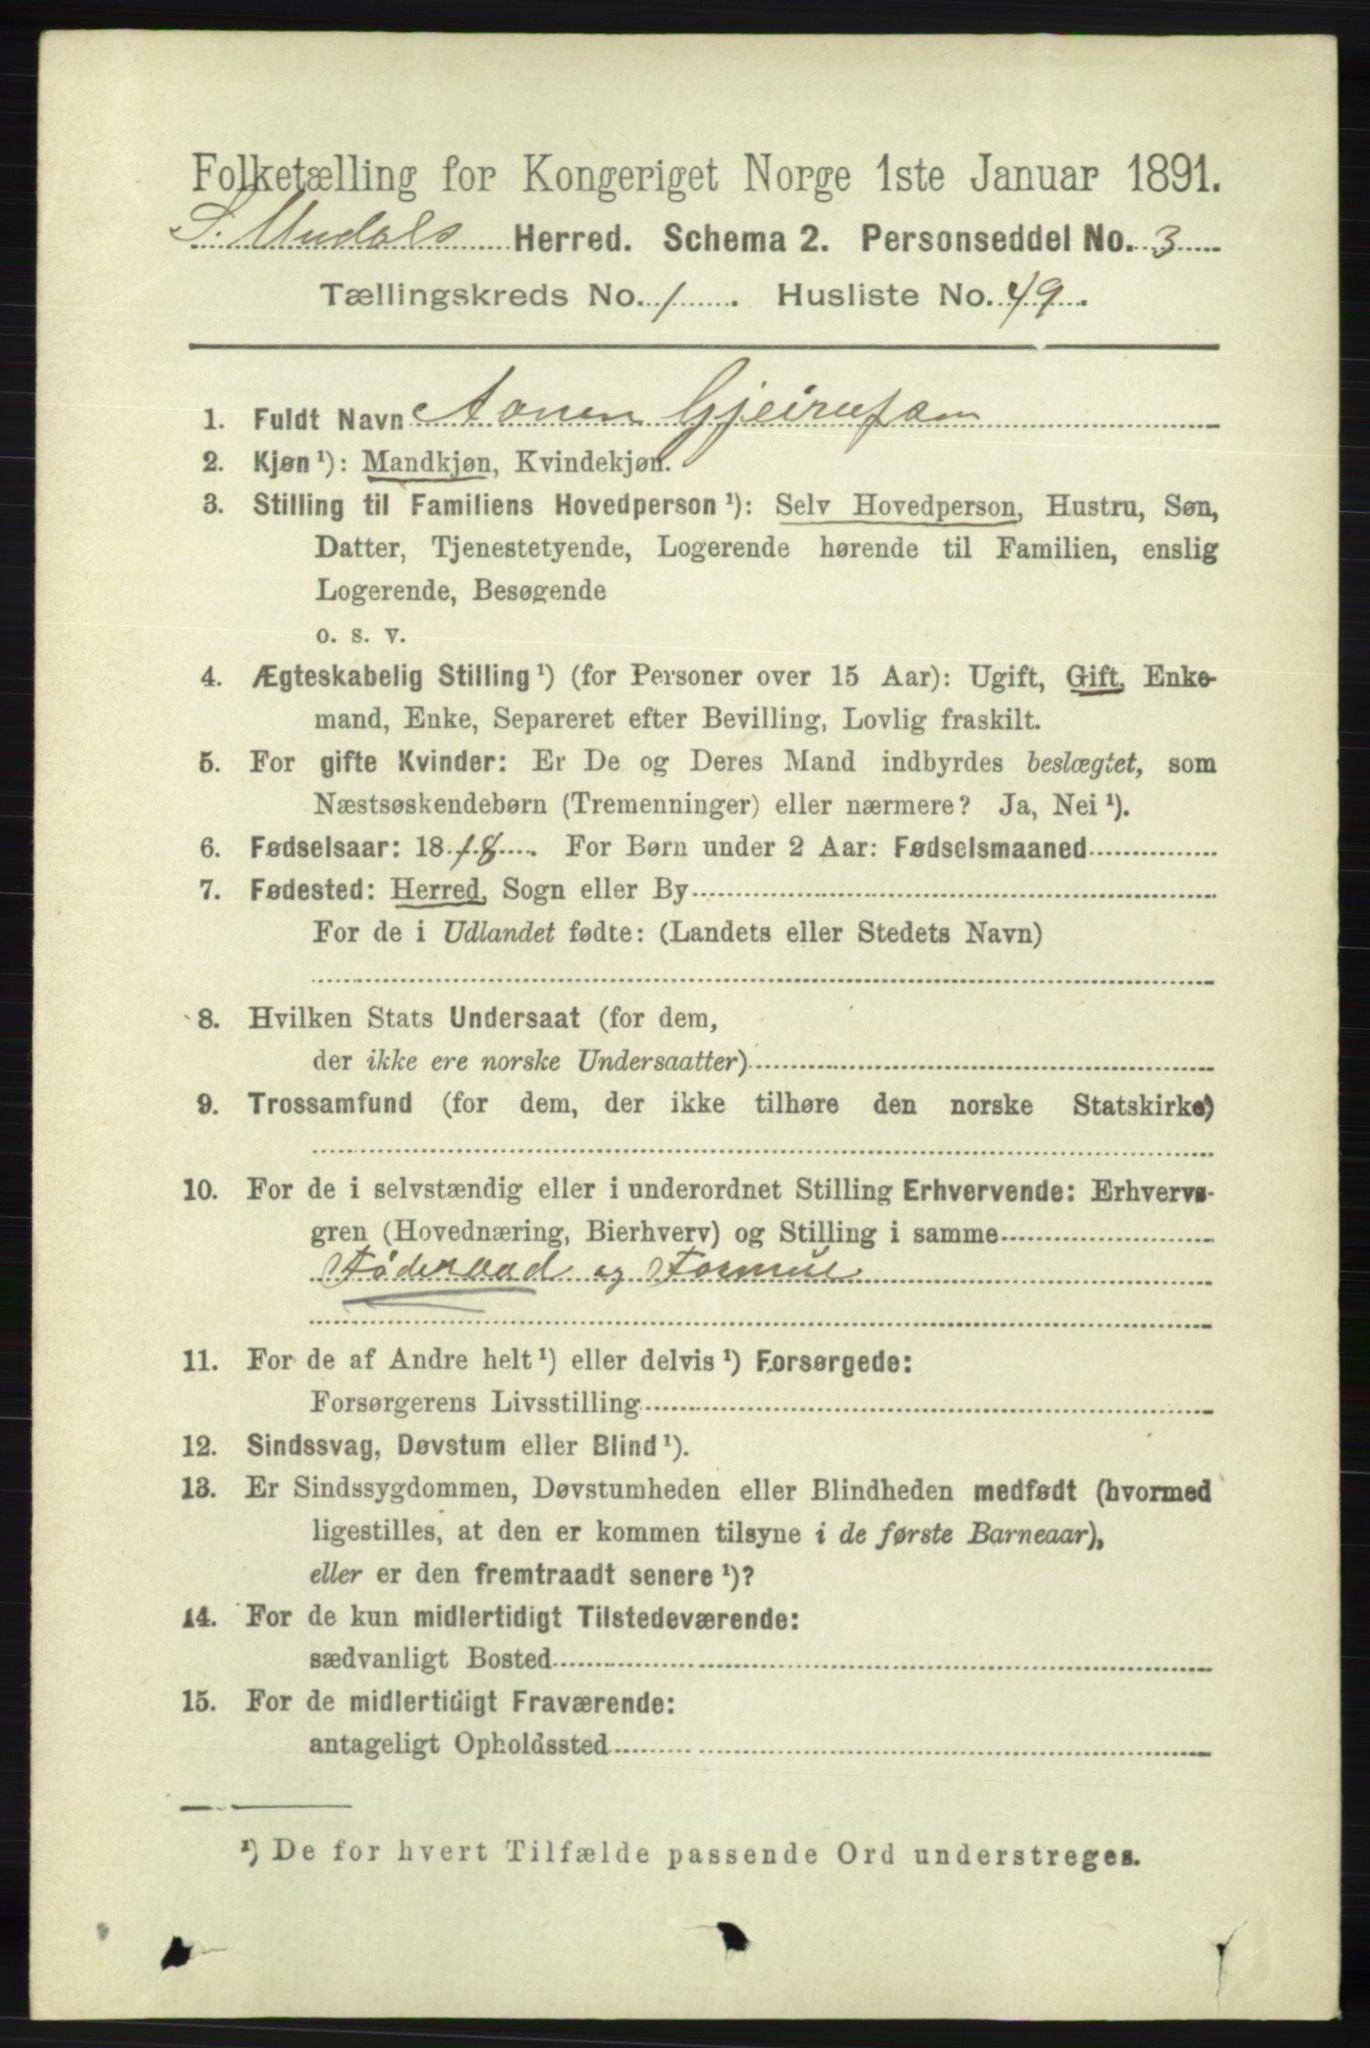 Folketælling for Kongeriget Norge 1ste Januar 1891.
S. Undals Herred. Schema 2. Personseddel No. 3
Tællingskreds No. 1. Husliste No. 49.
1. Fuldt Navn Aanen Gjeirufsen
2. Kjøn¹): Mandkjøn, Kvindekjøn.
3. Stilling til Familiens Hovedperson¹): Selv Hovedperson, Hustru, Søn,
Datter, Tjenestetyende, Logerende hørende til Familien, enslig
Logerende, Besøgende
o. s. v.
4. Ægteskabelig Stilling¹) (for Personer over 15 Aar): Ugift, Gift, Enke-
mand, Enke, Separeret efter Bevilling, Lovlig fraskilt.
5. For gifte Kvinder: Er De og Deres Mand indbyrdes beslægtet, som
Næstsøskendebørn (Tremenninger) eller nærmere? Ja, Nei¹).
6. Fødselsaar: 1818. For Børn under 2 Aar: Fødselsmaaned
7. Fødested: Herred, Sogn eller By
For de i Udlandet fødte: (Landets eller Stedets Navn)
8. Hvilken Stats Undersaat (for dem,
der ikke ere norske Undersaatter)
9. Trossamfund (for dem, der ikke tilhøre den norske Statskirke)
10. For de i selvstændig eller i underordnet Stilling Erhvervende: Erhvervs-
gren (Hovednæring, Bierhverv) og Stilling i samme
Føderaad og Formue
11. For de af Andre helt¹) eller delvis¹) Forsørgede:
Forsørgerens Livsstilling
12. Sindssvag, Døvstum eller Blind¹).
13. Er Sindssygdommen, Døvstumheden eller Blindheden medfødt (hvormed
ligestilles, at den er kommen tilsyne i de første Barneaar),
eller er den fremtraadt senere¹)?
14. For de kun midlertidigt Tilstedeværende:
sædvanligt Bosted
15. For de midlertidigt Fraværende:
antageligt Opholdssted
¹) De for hvert Tilfælde passende Ord understreges.